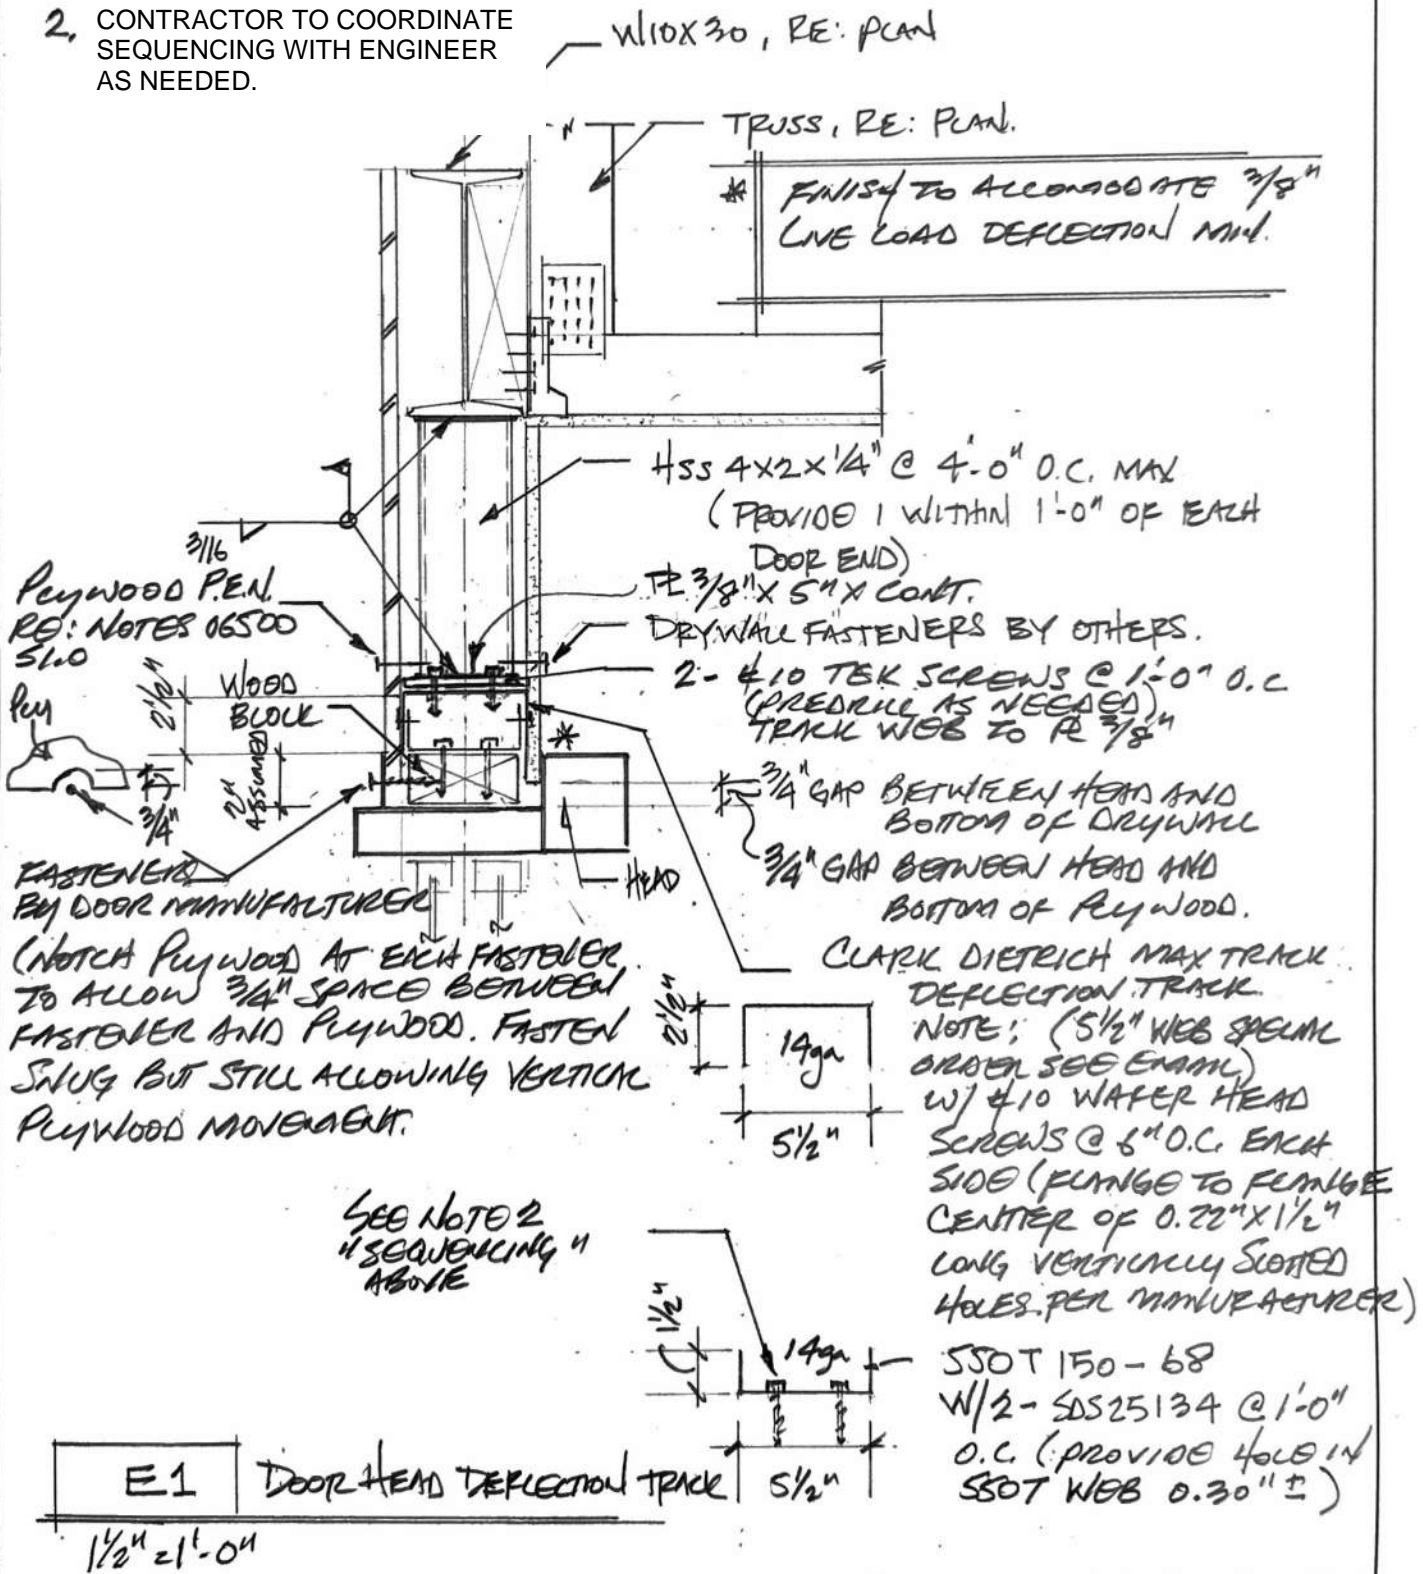 2. CONTRACTOR TO COORDINATE
SEQUENCING WITH ENGINEER
AS NEEDED.
W10X30, RE: PLAN
TRUSS, RE: PLAN.
* FINISH TO ACCOMODATE 3/8"
LIVE LOAD DEFLECTION MIN.
HSS 4X2X1/4" @ 4'-0" O.C. MAX
(PROVIDE 1 WITHIN 1'-0" OF EACH
DOOR END)
PL 3/8" X 5" X CONT.
DRYWALL FASTENERS BY OTHERS.
2- #10 TEK SCREWS @ 1'-0" O.C
(PREDRILL AS NEEDED)
TRACK WEB TO PL 3/8"
3/16
PLYWOOD P.E.N.
RE: NOTES 06500
S1.0
2 1/2"
WOOD
BLOCK
PLY
2"
ASSUMED
3/4"
*
3/4" GAP BETWEEN HEAD AND
BOTTOM OF DRYWALL
3/4" GAP BETWEEN HEAD AND
BOTTOM OF PLYWOOD.
HEAD
FASTENERS
BY DOOR MANUFACTURER
(NOTCH PLYWOOD AT EACH FASTENER
TO ALLOW 3/4" SPACE BETWEEN
FASTENER AND PLYWOOD. FASTEN
SNUG BUT STILL ALLOWING VERTICAL
PLYWOOD MOVEMENT.
CLARK DIETRICH MAX TRACK
DEFLECTION TRACK
NOTE: (5 1/2" WEB SPECIAL
ORDER SEE EMAIL)
W/ #10 WAFER HEAD
SCREWS @ 6" O.C. EACH
SIDE (FLANGE TO FLANGE
CENTER OF 0.22" X 1 1/2"
LONG VERTICALLY SLOTTED
HOLES PER MANUFACTURER)
2 1/2"
14ga
5 1/2"
SEE NOTE 2
"SEQUENCING"
ABOVE
1 1/2"
14ga
5 1/2"
SSOT 150-68
W/2- SDS25134 @ 1'-0"
O.C. (PROVIDE HOLE IN
SSOT WEB 0.30" ±)
E1 DOOR HEAD DEFLECTION TRACK
1 1/2" = 1'-0"